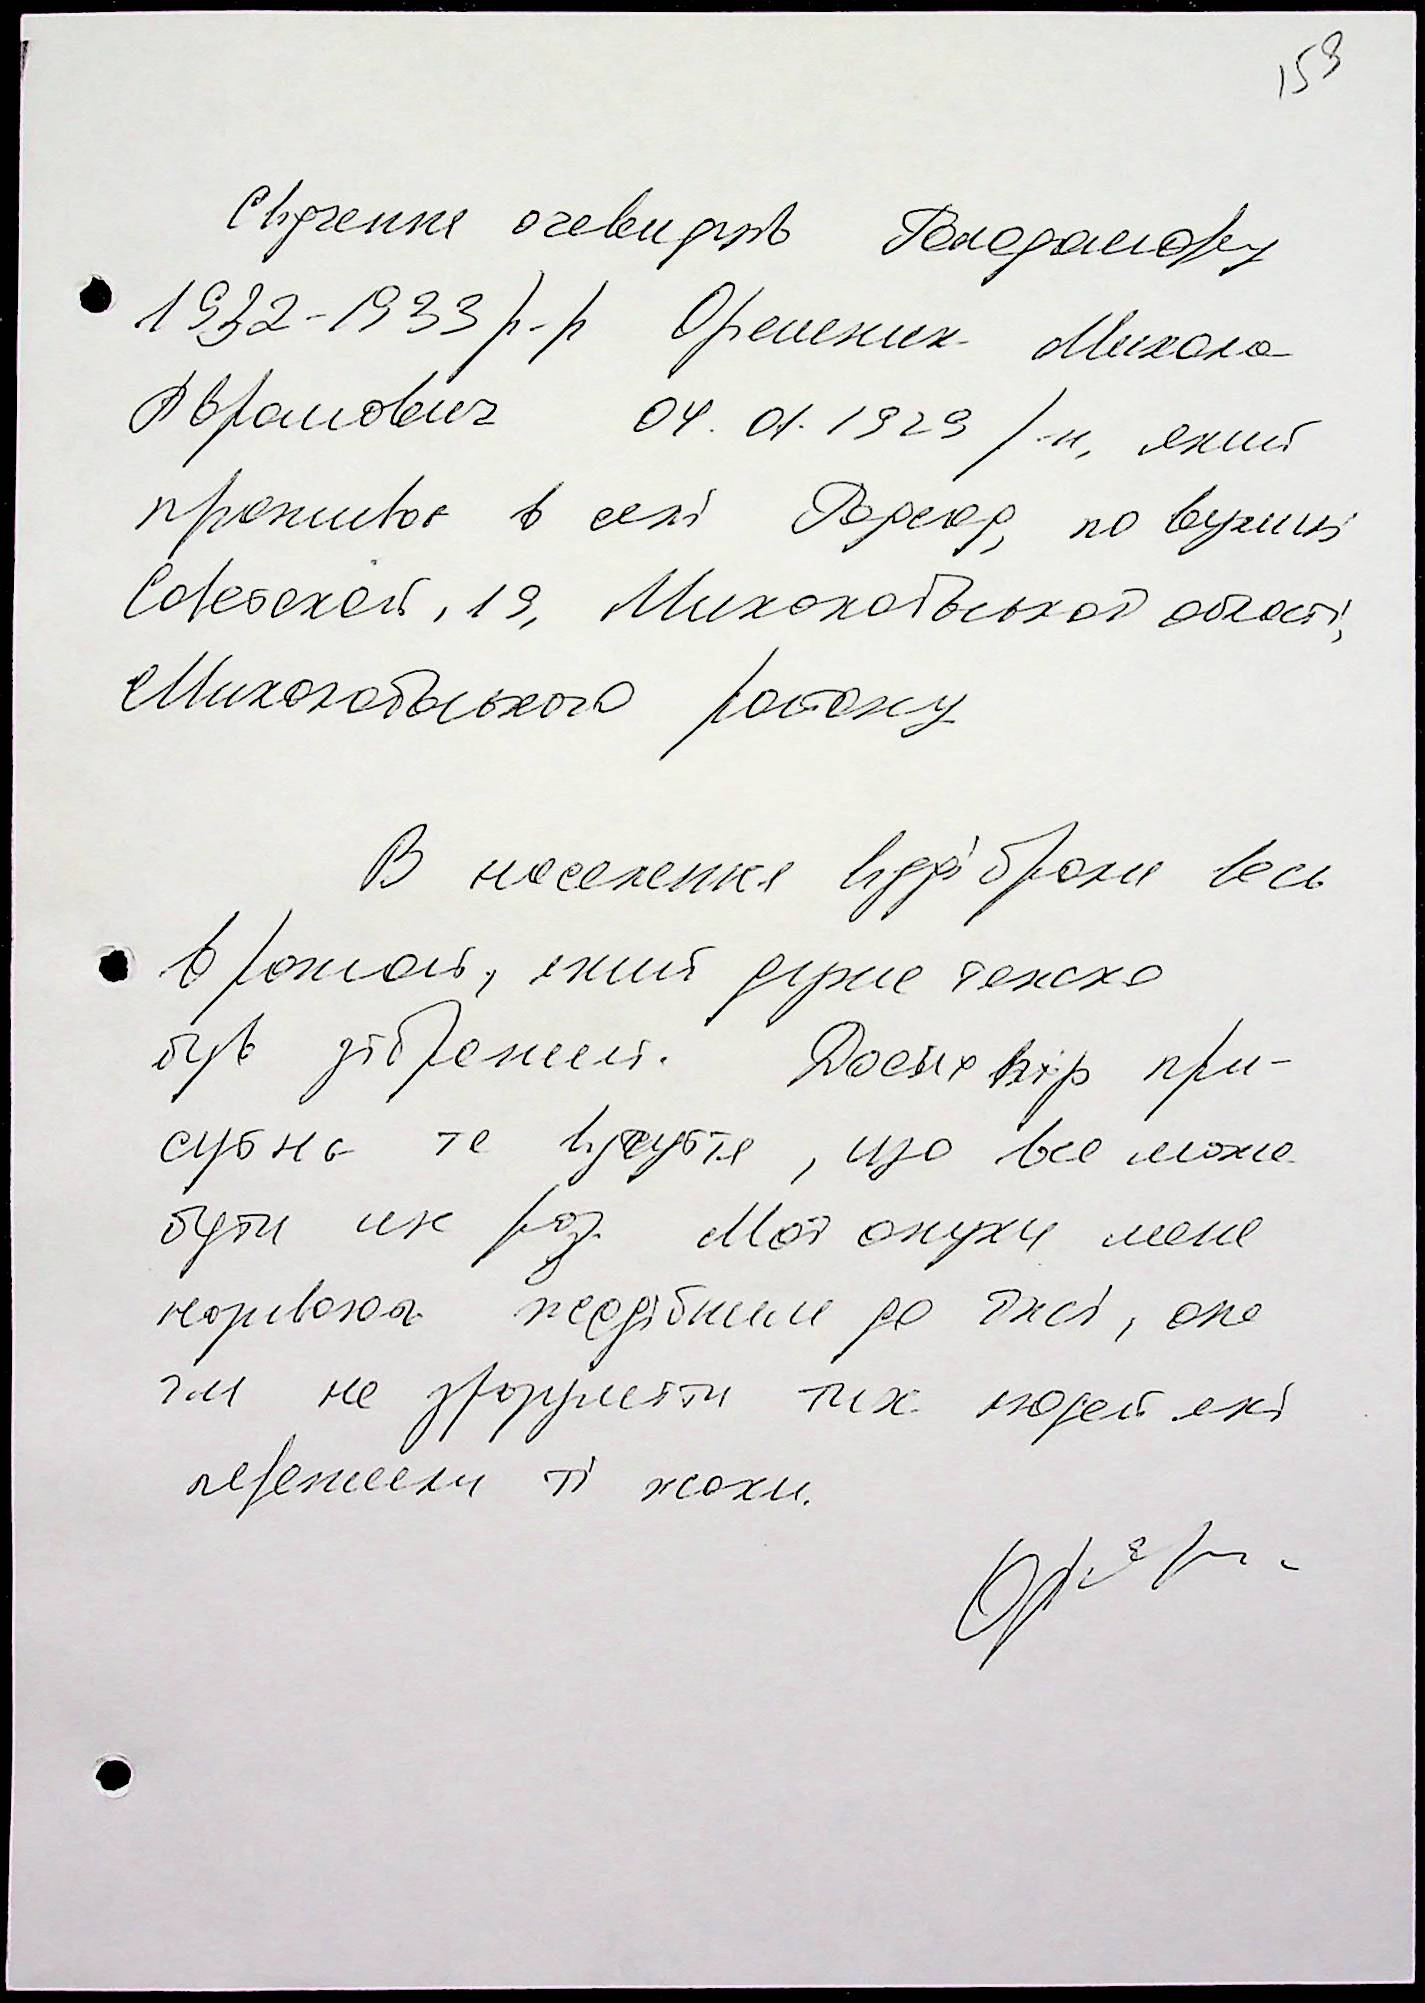 159
Свідчення очевидців Голодомору
1932-1933 р-р Орешник Микола
Аврамович 04.01.1929 р.н, який
проживає в селі Радсад, по вулиці
Совєтской, 19, Миколаївської області,
Миколаївського району
В населення відібрали весь
врожай, який дуже тяжко
був зібраний. Досих пір при-
сутнє те відчуття, що все може
бути ще раз. Мої онуки мене
називають жадібним до їжі, але
їм не зрозуміти тих людей які
пережили ті жахи.